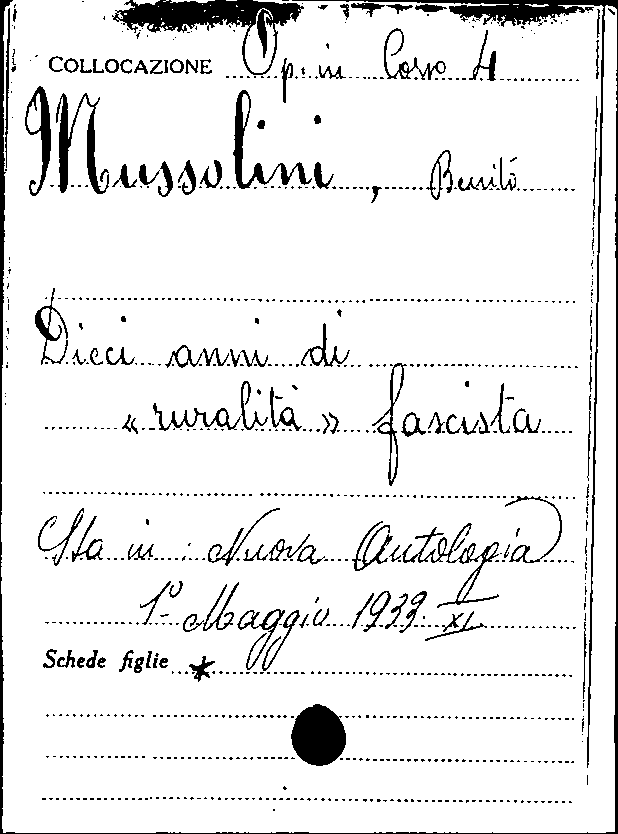 COLLOCAZIONE Op. in Corso 4
Mussolini, Benito
Dieci anni di
« ruralità » fascista
Sta in : Nuova Antologia
1º Maggio 1933. XI.
Schede figlie *